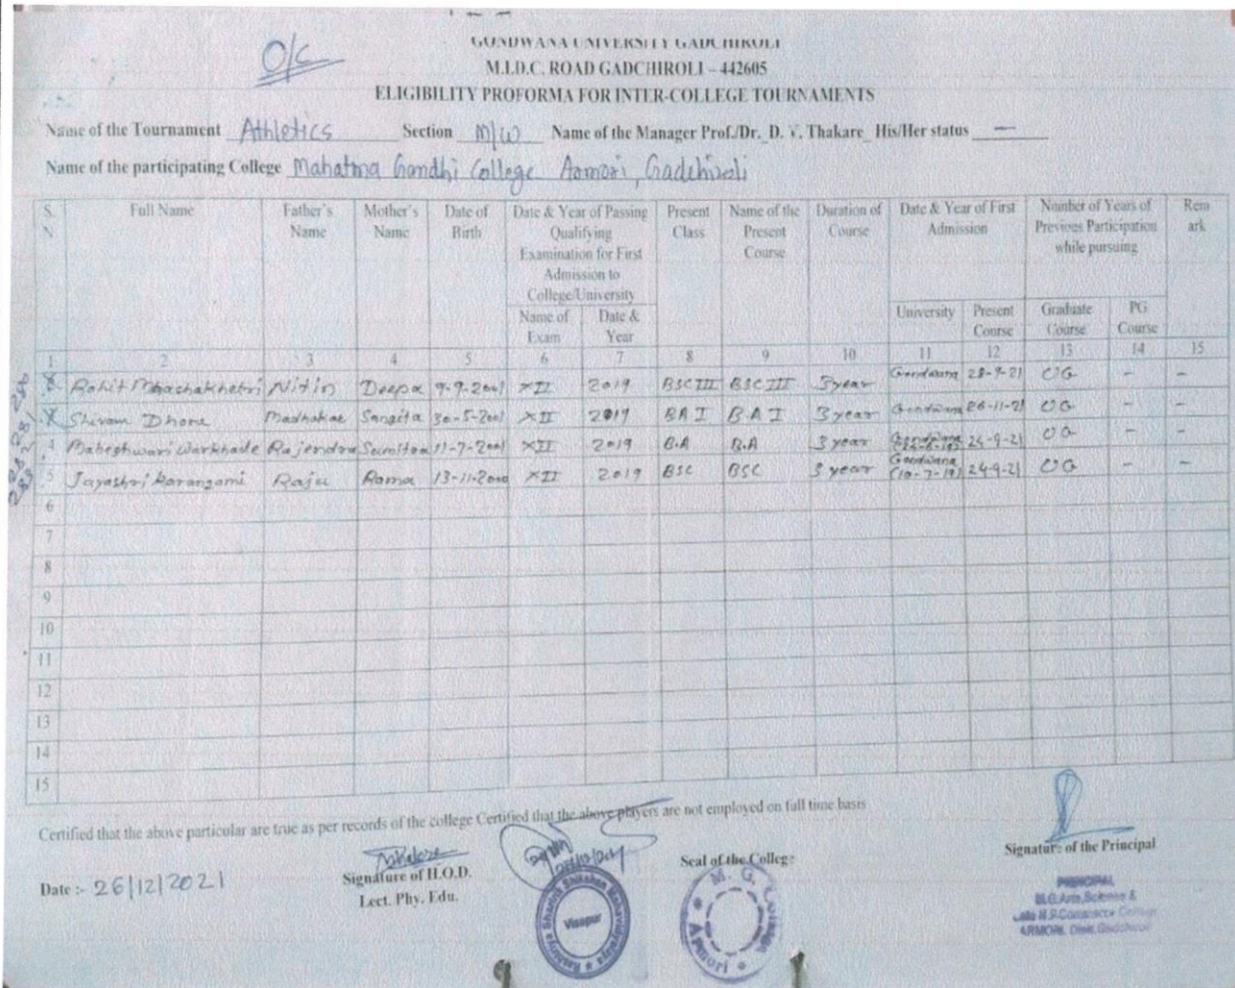 O/C
GONDWANA UNIVERSITY GADCHIROLI
M.I.D.C. ROAD GADCHIROLI – 442605
ELIGIBILITY PROFORMA FOR INTER-COLLEGE TOURNAMENTS
Name of the Tournament Athletics Section M/W Name of the Manager Prof./Dr. D. V. Thakare His/Her status —
Name of the participating College Mahatma Gandhi College Armori, Gadchiroli
S. N Full Name Father's Name Mother's Name Date of Birth Date & Year of Passing Qualifying Examination for First Admission to College/University Present Class Name of the Present Course Duration of Course Date & Year of First Admission Number of Years of Previous Participation while pursuing Rem ark
Name of Exam Date & Year University Present Course Graduate Course PG Course
1 2 3 4 5 6 7 8 9 10 11 12 13 14 15
280 Rohit Nitin Deepa 9-9-2001 XII 2019 BSC III BSC III 3 year Gondwana 28-9-21 UG - -
281 Shivam Dhone Madhukar Sangita 30-5-2001 XII 2019 BA I B A I 3 year Gondwana 26-11-21 UG - -
282 4 Maheshwari Warkhade Rajendra Sumitra 11-7-2001 XII 2019 B.A B.A 3 year 24-9-21 UG - -
283 5 Jayashri Karangami Raju Rama 13-11-2000 XII 2019 BSC BSC 3 year Gondwana (10-7-19) 24-9-21 UG - -
6
7
8
9
10
11
12
13
14
15
Certified that the above particular are true as per records of the college Certified that the above players are not employed on full time basis
Date :- 26/12/2021
Signature of H.O.D.
Lect. Phy. Edu.
Visapur
Seal of the College
M. G. College
Armori
Signature of the Principal
PRINCIPAL
M.G.Arts, Science &
Late N.P.Commerce College
ARMORI, Distt. Gadchiroli